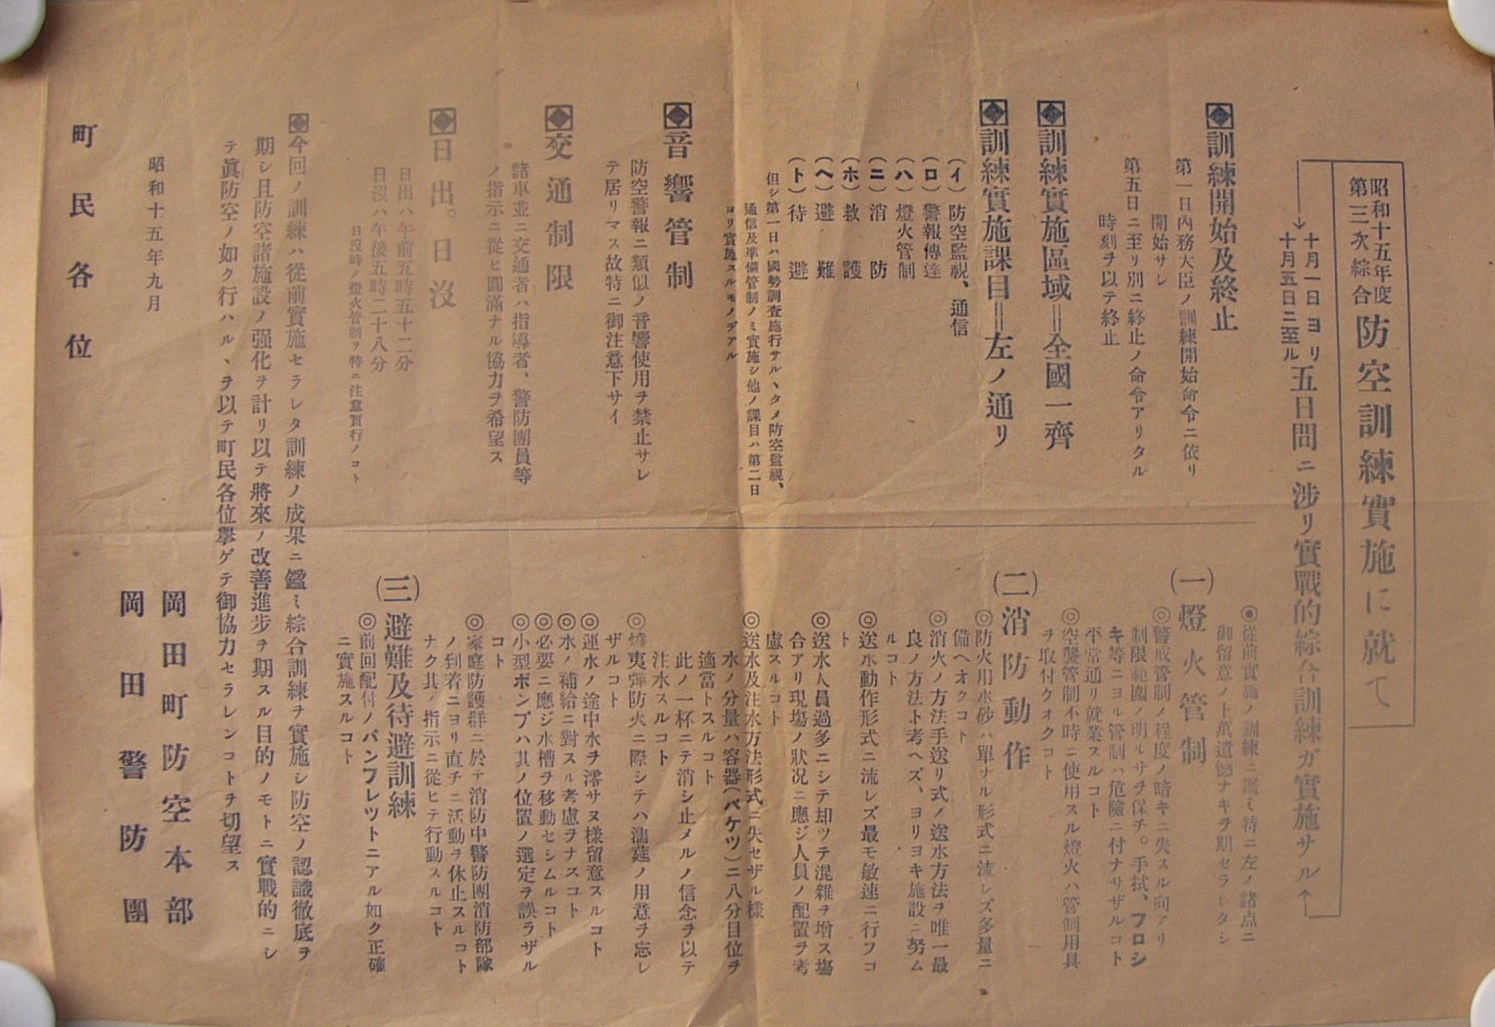 昭和十五年度
第三次綜合
防空訓練實施に就て
十月一日ヨリ
十月五日ニ至ル
五日間ニ渉リ實戰的綜合訓練ガ實施サル
訓練開始及終止
第一日內務大臣ノ訓練開始命令ニ依リ
開始サレ
第五日ニ至リ別ニ終止ノ命令アリタル
時刻ヲ以テ終止
訓練實施區域＝全國一齊
訓練實施課目＝左ノ通リ
(イ)防空監視、通信
(ロ)警報傳達
(ハ)燈火管制
(ニ)消防
(ホ)救護
(ヘ)避難
(ト)待避
但シ第一日ハ國勢調査施行サルヽタメ防空監視、
通信及準備管制ノミ實施シ他ノ課目ハ第二日
ヨリ實施スルモノデアル
音響管制
防空警報ニ類似ノ音響使用ヲ禁止サレ
テ居リマス故特ニ御注意下サイ
交通制限
諸車並ニ交通者ハ指導者、警防團員等
ノ指示ニ從ヒ圓滿ナル協力ヲ希望ス
日出。日沒
日出ハ午前五時五十二分
日沒ハ午後五時二十八分
日沒時ノ燈火管制ヲ特ニ注意實行ノコト
◉從前實施ノ訓練ニ鑑ミ特ニ左ノ諸点ニ
御留意ノ上萬遺憾ナキヲ期セラレタシ
(一)燈火管制
◎警戒管制ノ程度ノ暗キニ失スル向アリ
制限範圍ノ明ルサヲ保チ。手拭、フロシ
キ等ニヨル管制ハ危險ニ付ナサザルコト
平常通リ就業スルコト
◎空襲管制不時ニ使用スル燈火ハ管制用具
ヲ取付ケオクコト
(二)消防動作
◎防火用水砂ハ單ナル形式ニ流レズ多量ニ
備ヘオクコト
◎消火ノ方法手送リ式ノ送水方法ヲ唯一最
良ノ方法ト考ヘズ、ヨリヨキ施設ニ努ム
ルコト
◎送水動作形式ニ流レズ最モ敏速ニ行フコ
ト
◎送水人員過多ニシテ却ツテ混雜ヲ增ス場
合アリ現場ノ狀況ニ應ジ人員ノ配置ヲ考
慮スルコト
◎送水及注水方法形式ニ失セザル樣
水ノ分量ハ容器(バケツ)ニ八分目位ヲ
適當トスルコト
此ノ一杯ニテ消シ止メルノ信念ヲ以テ
注水スルコト
◎燒夷彈防火ニ際シテハ濡莚ノ用意ヲ忘レ
ザルコト
◎運水ノ途中水ヲ澪サヌ樣留意スルコト
◎水ノ補給ニ對スル考慮ヲナスコト
◎必要ニ應ジ水槽ヲ移動セシムルコト
◎小型ポンプハ其ノ位置ノ選定ヲ誤ラザル
コト
◎家庭防護群ニ於テ消防中警防團消防部隊
ノ到着ニヨリ直チニ活動ヲ休止スルコト
ナク其ノ指示ニ從ヒテ行動スルコト
(三)避難及待避訓練
◎前回配付ノパンフレツトニアル如ク正確
ニ實施スルコト
今回ノ訓練ハ從前實施セラレタ訓練ノ成果ニ鑑ミ綜合訓練ヲ實施シ防空ノ認識徹底ヲ
期シ且防空諸施設ノ强化ヲ計リ以テ將來ノ改善進步ヲ期スル目的ノモトニ實戰的ニシ
テ眞防空ノ如ク行ハルヽヲ以テ町民各位擧ゲテ御協力セラレンコトヲ切望ス
昭和十五年九月
岡田町防空本部
岡田警防團
町民各位